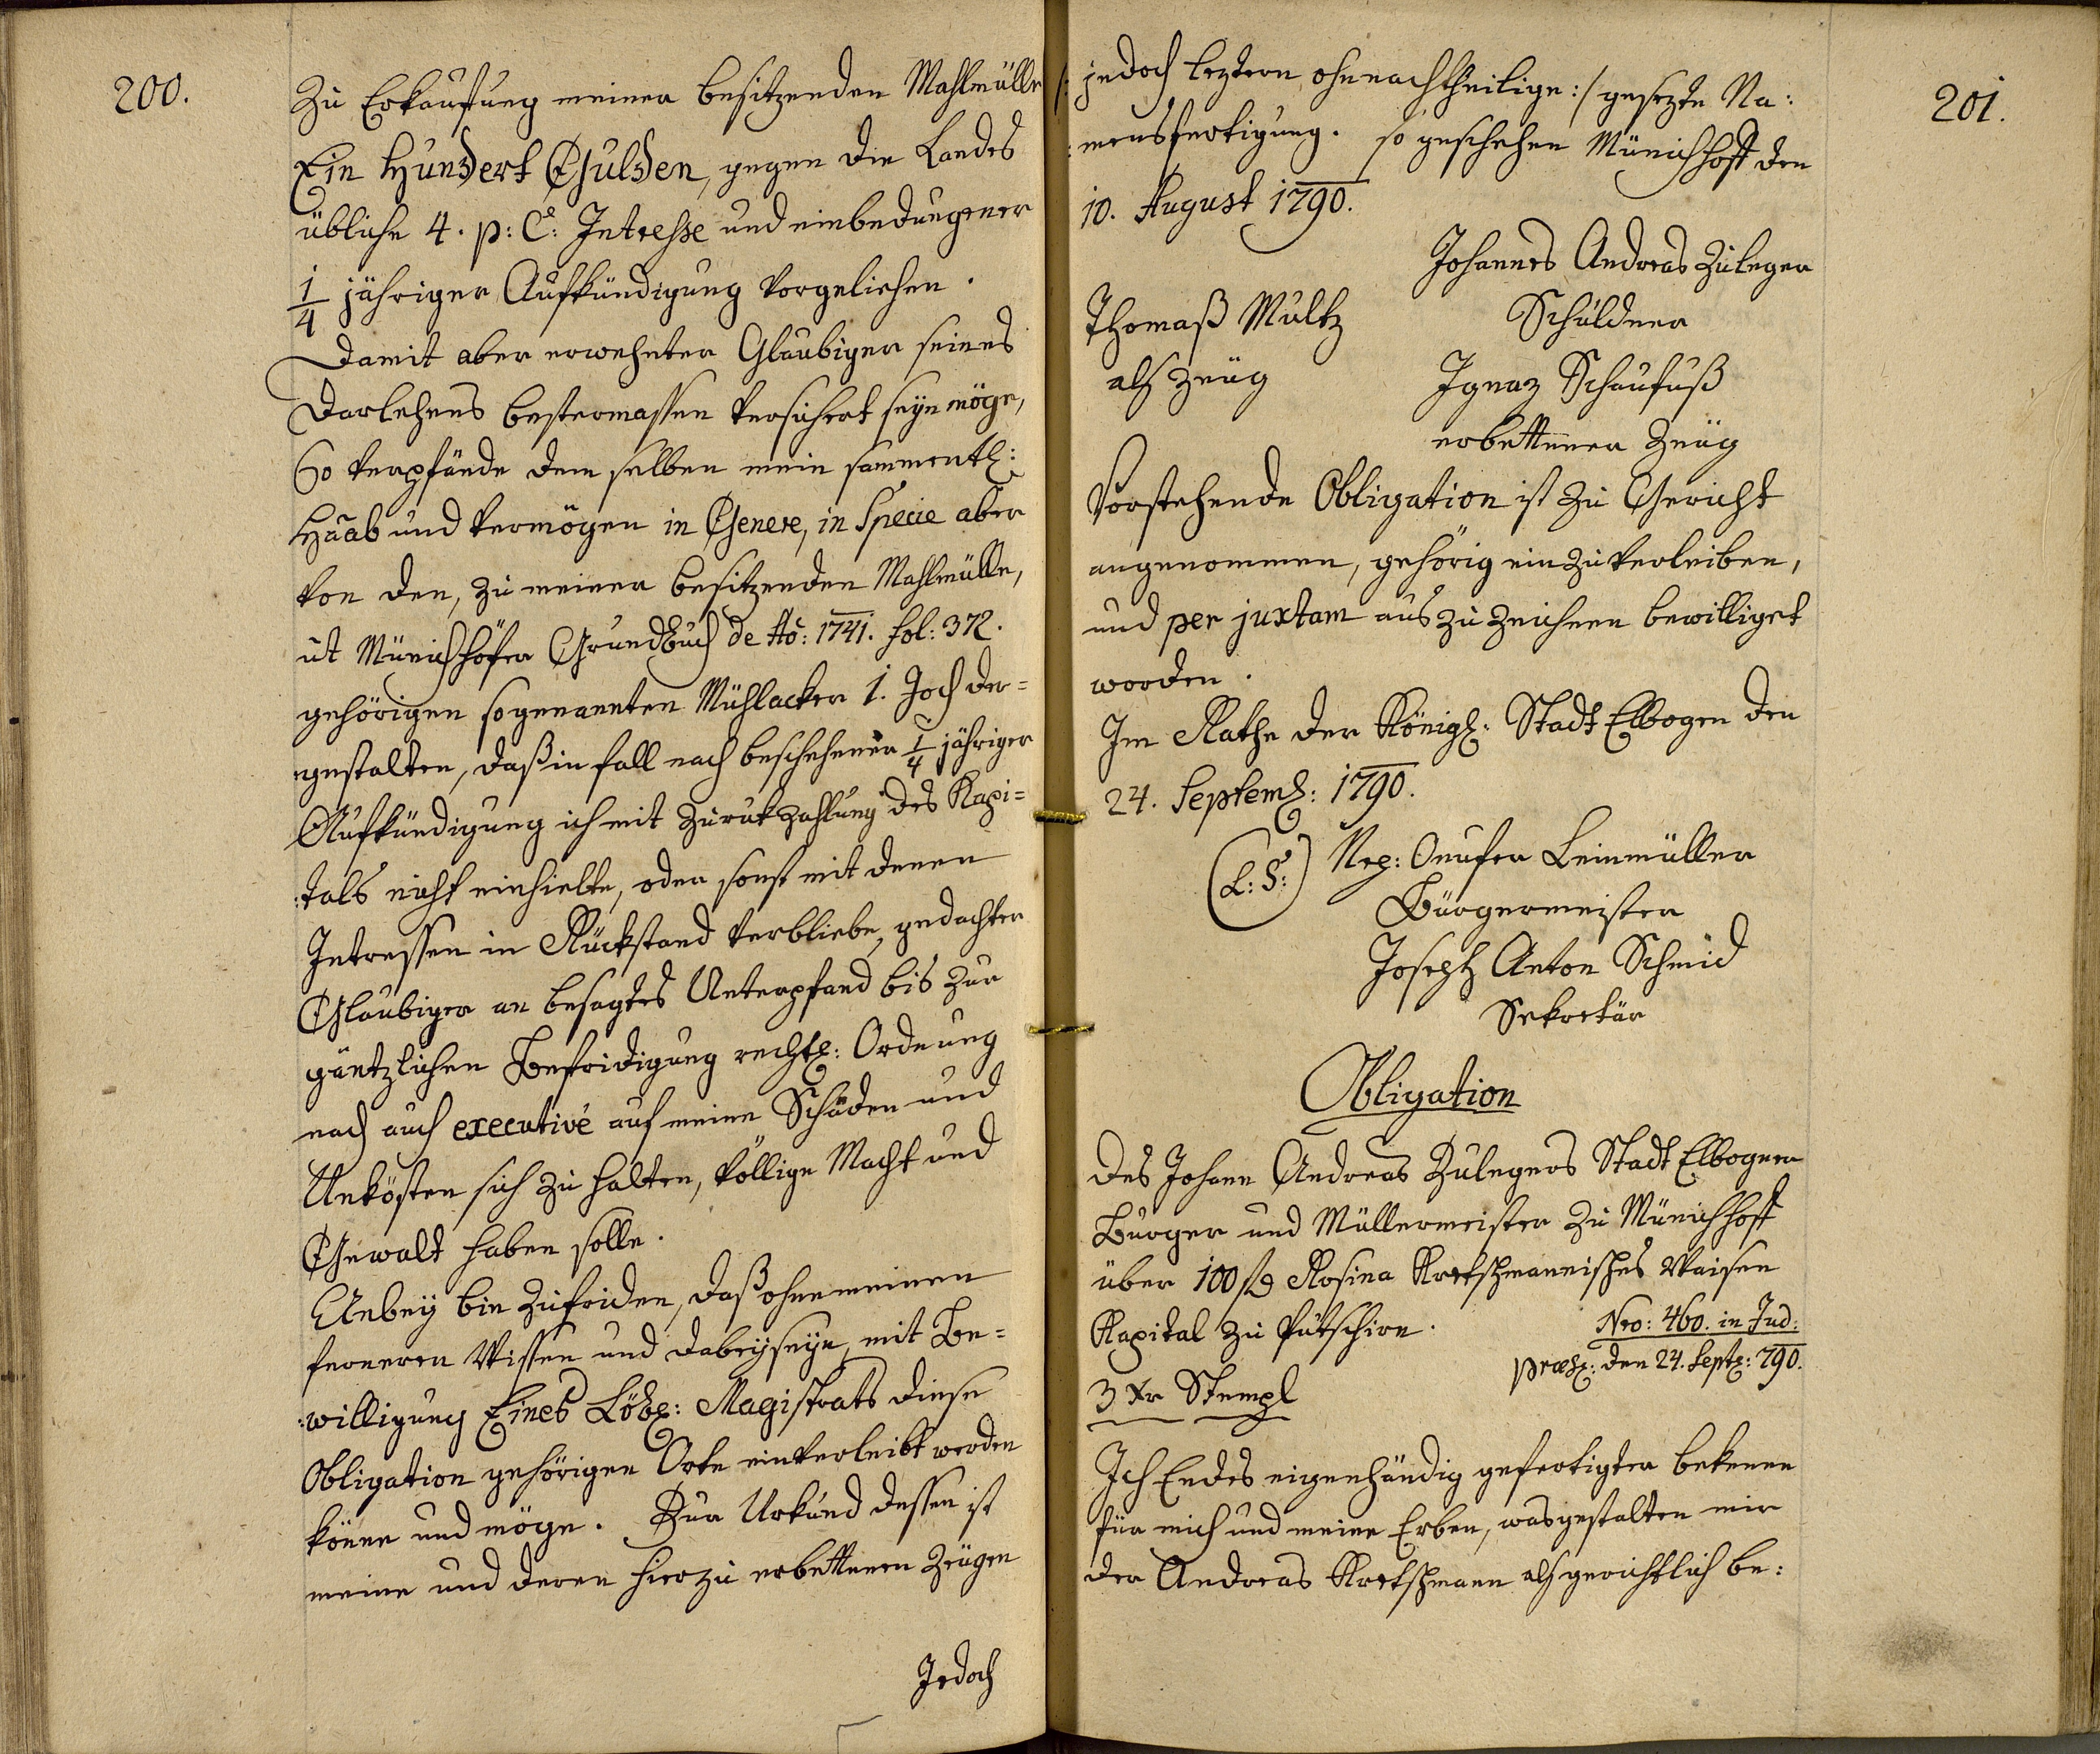 200.
Zu Erkaufung meiner besitzenden Mahlmülle
Ein Hundert Gulden, gegen die Landes
übliche 4. p: C: Intresse und einbedungener
1/4 jähriger Aufkündigung vorgeliehen.
Damit aber erwehnter Glaubiger seines
Darlehens bestermassen versichert seyn möge,
So verpfände dem selben mein sammentl:
Haab und Vermögen in Genere, in Specie aber
von den, zu meiner besitzenden Mahlmülle,
ut Münichhöfer Grundbuch de Ao: 1741. fol: 372.
gehörigen sogenannten Mühlacker 1. Joch der=
gestalten, daß in fall nach beschehener 1/4 jähriger
Aufkündigung ich mit Zurukzahlung des Kapi=
:tals nicht einhielte, oder sonst mit denen
Intressen in Rückstand verbliebe, gedachter
Glaubiger an besagtes Unterpfand bis zur
gäntzlichen Befridigung rechtl: Ordnung
nach auch executivé auf meine Schäden und
Unkösten sich zu halten, völlige Macht und
Gewalt haben solle.
Anbey bin zufriden, daß ohne meinen
ferneren Wissen und dabeyseyn, mit Be=
:willigung Eines Löbl: Magistrats diese
Obligation gehörigen Orte einverleibt werden
könne und möge. Zur Urkund dessen ist
meine und deren hierzu erbettenen Zeugen
Jedoch
201.
/: jedoch leztern ohnnachtheilige :/ gesezte Na:
:mensfertigung. so geschehen Münichhoff den
10. August 1790.
Johannes Andreas Zuleger
Schuldner
Thomaß Multz
als Zeug
Ignaz Schaufuß
erbettener Zeug
Vorstehende Obligation ist zu Gericht
angenommen, gehörig ein zu verleiben,
und per juxtam aus zu zeichnen bewilliget
worden.
Im Rathe der Königl: Stadt Elbogen den
24. Septemb: 1790.
(L: S:) Nep: Onufer Leinmüller
Bürgermeister
Joseph Anton Schmid
Sekretär
Obligation
Des Johann Andreas Zulegers Stadt Elbogner
Burger und Müllermeister zu Münichhoff
über 100 f Rosina Kretschmannisches Waisen
Kapital zu Putschirn.
Nro: 460. in Jud:
præs: den 24. Sept: 790.
3 Xr Stempl
Ich Endes eigenhändig gefertigter bekenne
für mich und meine Erben, wasgestalten mir
der Andreas Kretschmann als gerichtlich be: